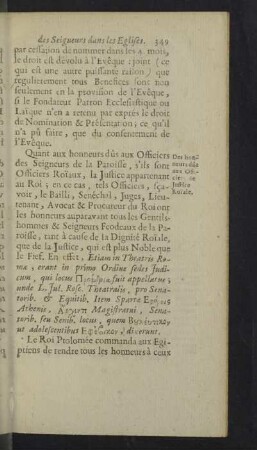 des Seigneurs dans les Eglises. 349
par cessation de nommer dans les 4 mois,
le droit est dévolu à l'Evêque ; joint ( ce
qui est une autre puissante raison ) que
regulièrement tous Benefices sont non
seulement en la provision de l'Evêque,
si le Fondateur Patron Ecclesiastique ou
Laïque n'en a retenu par exprès le droit
de Nomination & Présentation ; ce qu'il
n'a pû faire, que du consentement de
l'Evêque.
Quant aux honneurs dûs aux Officiers
des Seigneurs de la Paroisse, s'ils sont
Officiers Roïaux, la Justice appartenant
au Roi ; en ce cas, tels Officiers, sça-
voir, le Bailli, Senéchal, Juges, Lieu-
tenant, Avocat & Procureur du Roi ont
les honneurs auparavant tous les Gentils-
hommes & Seigneurs Feodaux de la Pa-
roisse, tant à cause de la Dignité Roïale,
que de la Justice, qui est plus Noble que
le Fief. En effet, Etiam in Theatris Ro-
ma, erant in primo Ordine sedes Judi-
cum, qui locus fuit appellatus ;
unde L. Jul. Rosc. Theatralis, pro Sena-
torib. & Equitib. Item Sparte
Athenis, Magistratui, Sena-
torib. seu Senib. locus, quem
ut adolescentibus dixerunt.
Le Roi Ptolomée commanda aux Egi-
ptiens de rendre tous les honneurs à ceux
Des hon-
neurs dûs
aux Offi-
ciers de
Justice
Roïale.